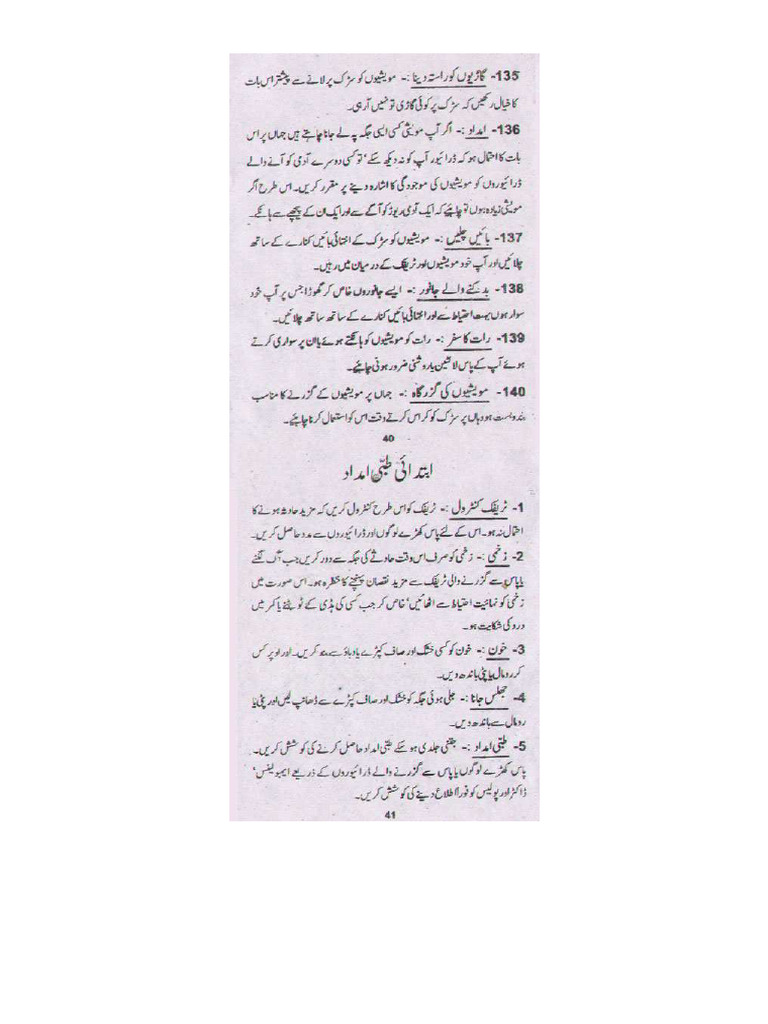 135- گاڑیوں کو راستہ دینا :- مویشیوں کو سڑک پر لانے سے پیشتر اس بات
کا خیال رکھیں کہ سڑک پر کوئی گاڑی تو نہیں آ رہی۔
136- امداد :- اگر آپ مویشی کسی ایسی جگہ پہ لے جانا چاہتے ہیں جہاں پر اس
بات کا احتمال ہو کہ ڈرائیور آپ کو نہ دیکھ سکے' تو کسی دوسرے آدمی کو آنے والے
ڈرائیوروں کو مویشیوں کی موجودگی کا اشارہ دینے پر مقرر کریں۔ اس طرح اگر
مویشی زیادہ ہوں تو چاہئیے کہ ایک آدمی ریوڑ کو آگے سے اور ایک ان کے پیچھے سے ہانکے۔
137- بائیں چلیں :- مویشیوں کو سڑک کے انتہائی بائیں کنارے کے ساتھ
چلائیں اور آپ خود مویشیوں اور ٹریفک کے درمیان میں رہیں۔
138- بدکنے والے جانور :- ایسے جانوروں خاص کر گھوڑا جس پر آپ خود
سوار ہوں بہت احتیاط سے اور انتہائی بائیں کنارے کے ساتھ ساتھ چلائیں۔
139- رات کا سفر :- رات کو مویشیوں کو ہانکتے ہوئے یا ان پر سواری کرتے
ہوئے آپ کے پاس لالٹین یا روشنی ضرور ہونی چاہئیے۔
140- مویشیوں کی گزرگاہ :- جہاں پر مویشیوں کے گزرنے کا مناسب
بندوبست ہو وہاں پر سڑک کو کراس کرتے وقت اس کو استعمال کرنا چاہئیے۔
40
ابتدائی طبّی امداد
1- ٹریفک کنٹرول :- ٹریفک کو اس طرح کنٹرول کریں کہ مزید حادثہ ہونے کا
احتمال نہ ہو۔ اس کے لئے پاس کھڑے لوگوں اور ڈرائیوروں سے مدد حاصل کریں۔
2- زخمی :- زخمی کو صرف اس وقت حادثے کی جگہ سے دور کریں جب آگ لگنے
یا پاس سے گزرنے والی ٹریفک سے مزید نقصان پہنچنے کا خطرہ ہو۔ اس صورت میں
زخمی کو نہایت احتیاط سے اٹھائیں' خاص کر جب کسی کی ہڈی کے ٹوٹنے یا کمر میں
درد کی شکایت ہو۔
3- خون :- خون کو کسی خشک اور صاف کپڑے یا دباؤ سے بند کریں۔ اور اوپر کس
کر رومال یا پٹی باندھ دیں۔
4- جھلس جانا :- جلی ہوئی جگہ کو خشک اور صاف کپڑے سے ڈھانپ لیں اور پٹی یا
رومال سے باندھ دیں۔
5- طبّی امداد :- جتنی جلدی ہو سکے طبّی امداد حاصل کرنے کی کوشش کریں۔
پاس کھڑے لوگوں یا پاس سے گزرنے والے ڈرائیوروں کے ذریعے ایمبولینس'
ڈاکٹر اور پولیس کو فوراً اطلاع دینے کی کوشش کریں۔
41